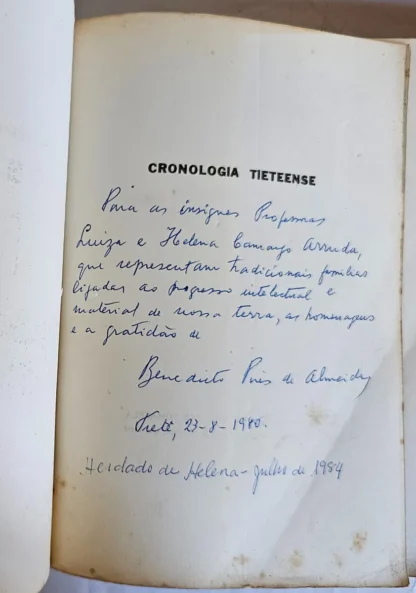 CRONOLOGIA TIETEENSE
Para as insignes Professoras
Luiza e Helena Camargo Arruda,
que representam tradicionais famílias
ligadas ao progresso intelectual e
material de nossa terra, as homenagens
e a gratidão de
Benedicto Pires de Almeida
Tietê, 23-8-1980.
Herdado de Helena - julho de 1984